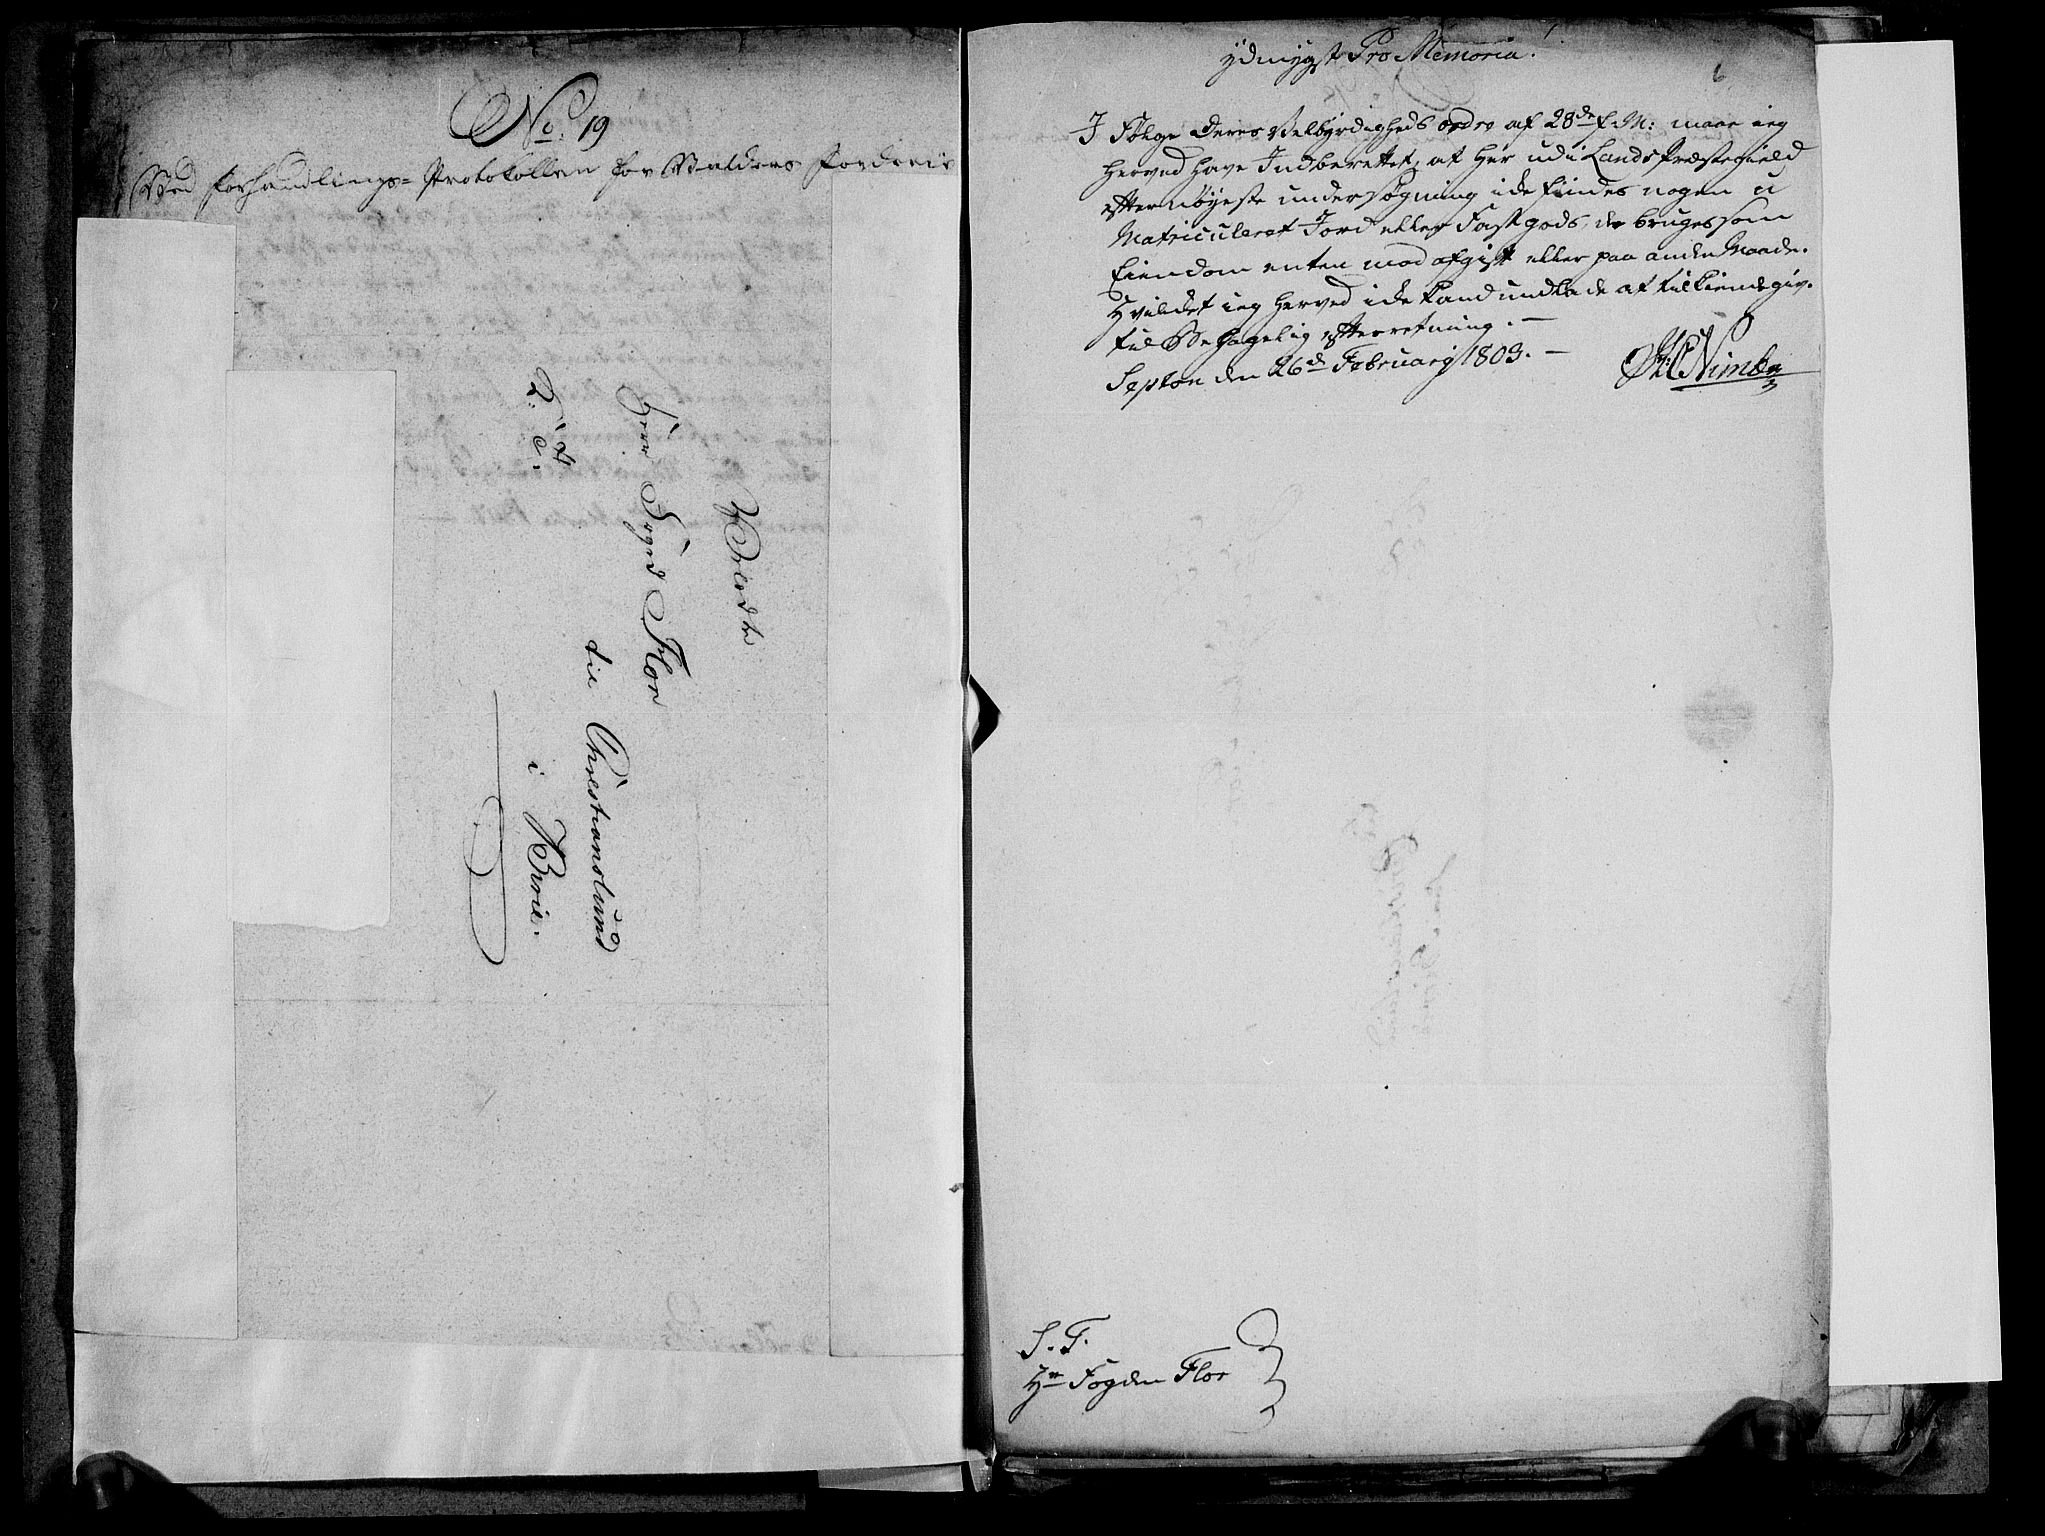 No: 19
Ved Forhandlings-Protokollen for Valders Fogderie
Velædle
Herr Foged Flor
til Christianslund
i
ydmygst Pro Memoria.
6
I Følge Deres Velbyrdigheds ordre af 28de f. M: maae ieg
herved have Indberettet, at her udi Lands Præstegield
efter nøyeste undersøgning icke findes nogen u
Matriculeret Jord eller Fastgods, der bruges som
Eiendom enten mod afgift eller paa anden Maade.
Hvilket ieg herved icke kand undlade at tilkiendegiv.
til Behagelig efterretning. —
den 26de February 1803. —
S. T.
Hr Fogden Flor